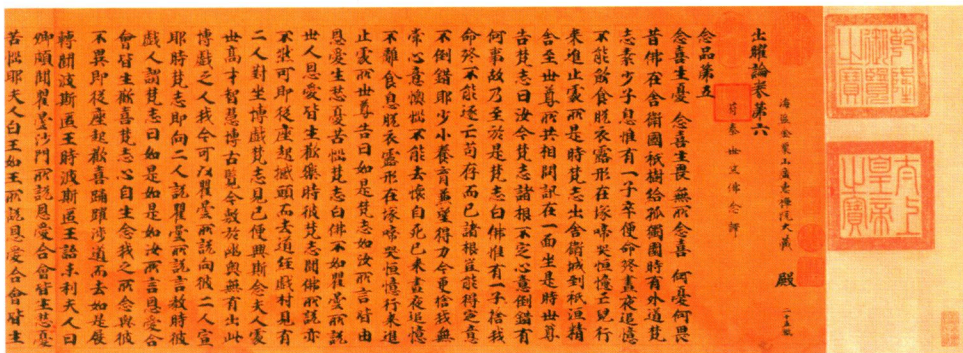 出曜論第六
海鹽金粟山廣惠禪院大藏 殿 二十五紙
苻秦世竺佛念譯
念品第五
念喜生憂 念喜生畏 無所念喜 何憂何畏
昔佛在舍衛國祇樹給孤獨園時有外道梵
志素少子息惟有一子卒便命終晝夜追憶
不能飲食脫衣露形在塚啼哭恒憶亡兒行
來進止處所是時梵志出舍衛城到祇洹精
舍至世尊所共相問訊在一面坐是時世尊
告梵志曰汝今梵志諸根不定心意倒錯有
何事故乃至於是梵志白佛唯有一子捨我
命終不能逐亡苟存而已諸根豈能得定意
不倒錯耶少小養育冀望得力今更捨我無
常心意懊惱不能去懷自死已來晝夜追憶
不離食息脫衣露形在塚啼哭恒憶行來進
止處所世尊告曰如是梵志如汝所言皆由
恩愛生愁憂苦惱梵志白佛不如瞿曇所說
世人恩愛皆生歡樂時彼梵志聞佛所說亦
不然可即從座起撼頭而去道經戲村見有
二人對坐博戲梵志見已便興斯念夫人處
世高才智慧博古覽今數於幽奧無有出此
博戲之人我今可以瞿曇所說向彼二人宣
耶時梵志即向二人說瞿曇所說言教時彼
戲人謂梵志曰如是如是如汝所言恩愛合
會皆生歡喜梵志心自生念我之所念與彼
不異即從座起歡喜踊躍涉道而去如是展
轉聞波斯匿王時波斯匿王語末利夫人曰
卿頗聞瞿曇沙門所說恩愛合會皆生悲憂
苦惱耶夫人白王如王所說恩愛合會皆生
乾隆御覽之寶
太上皇帝之寶